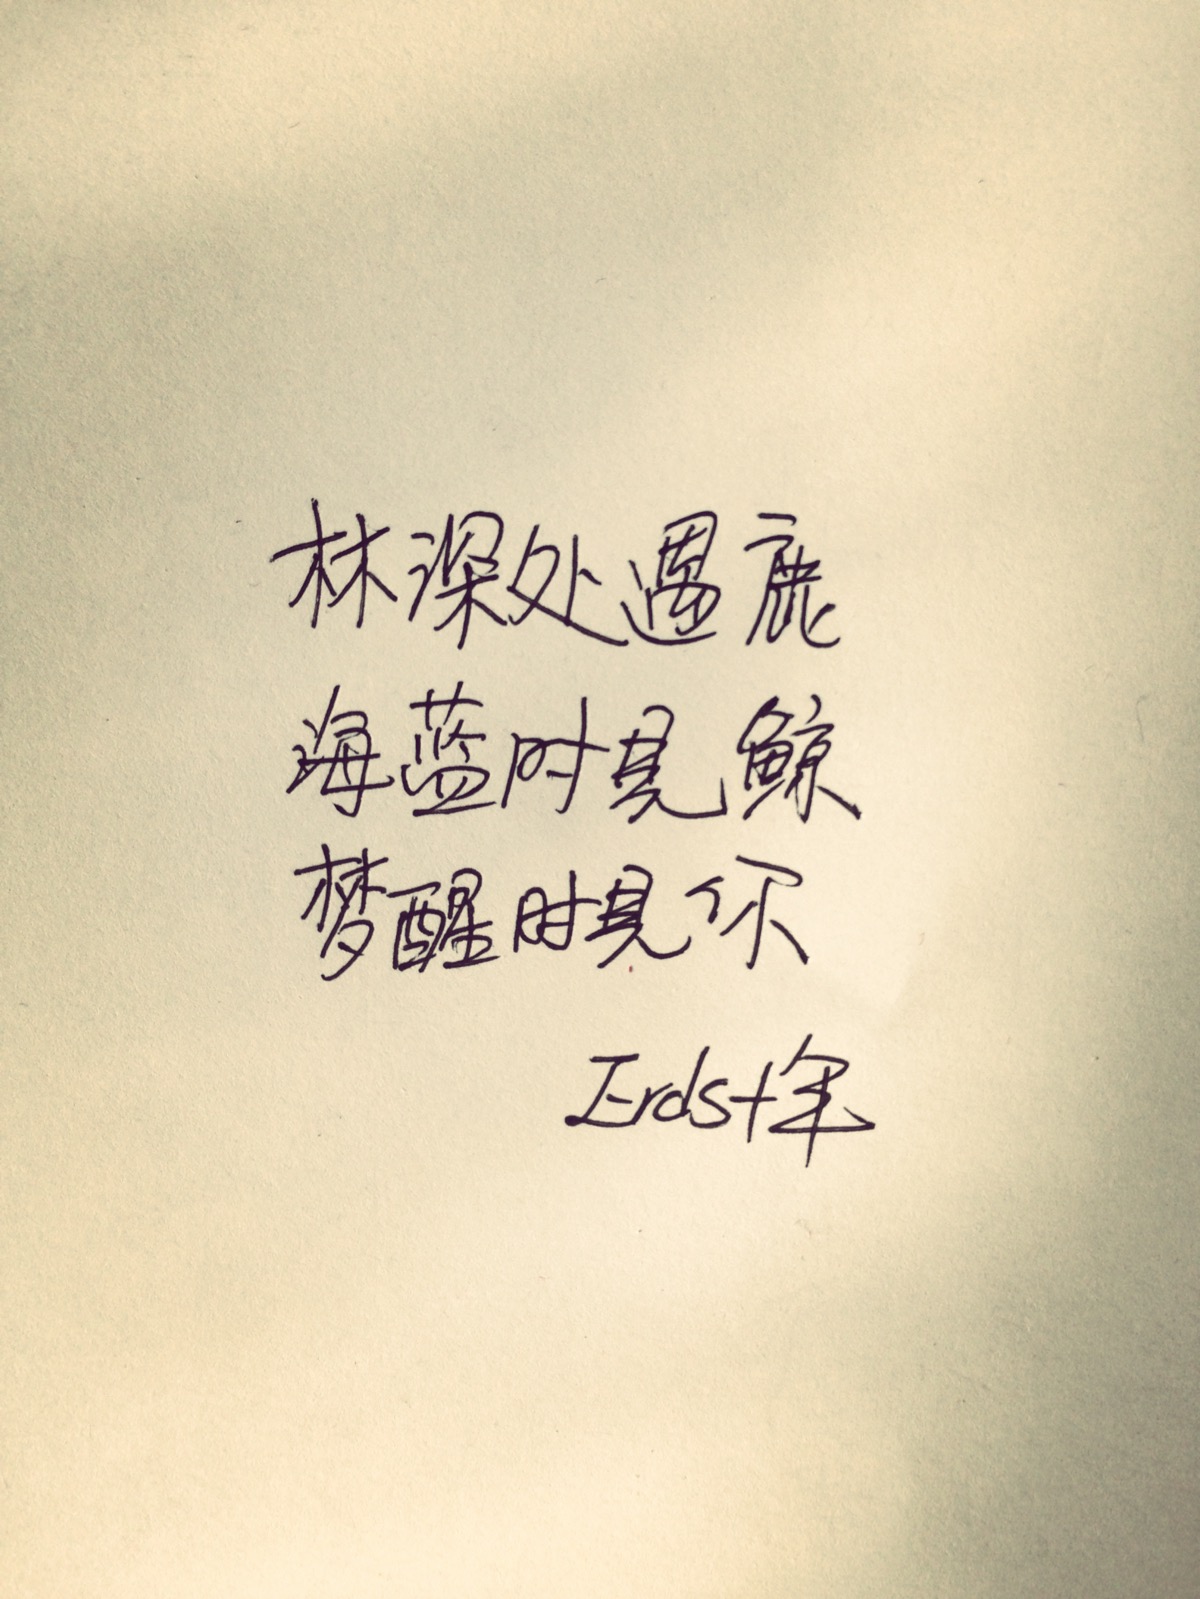 林深处遇鹿
海蓝时见鲸
梦醒时见你
Erds十年